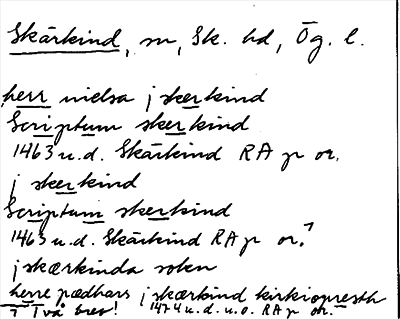 Skärkind, sn, Sk. hd, Ög. l.
herr nielsa j skerkind
Scriptum skerkind
1463 u.d. Skärkind RA p or.
j skerkind
Scriptum skerkind
1463 u.d. Skärkind RA p or.
j skærkinda sokn
herre pædhars j skærkind kirkiopresth
i Två brev! 1474 u.d. u.o. RA p or.